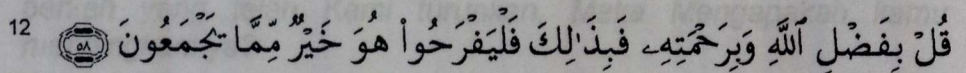 قُلْ بِفَضْلِ ٱللَّهِ وَبِرَحْمَتِهِۦ فَبِذَٰلِكَ فَلْيَفْرَحُوا۟ هُوَ خَيْرٌ مِّمَّا يَجْمَعُونَ ٥٨ 12